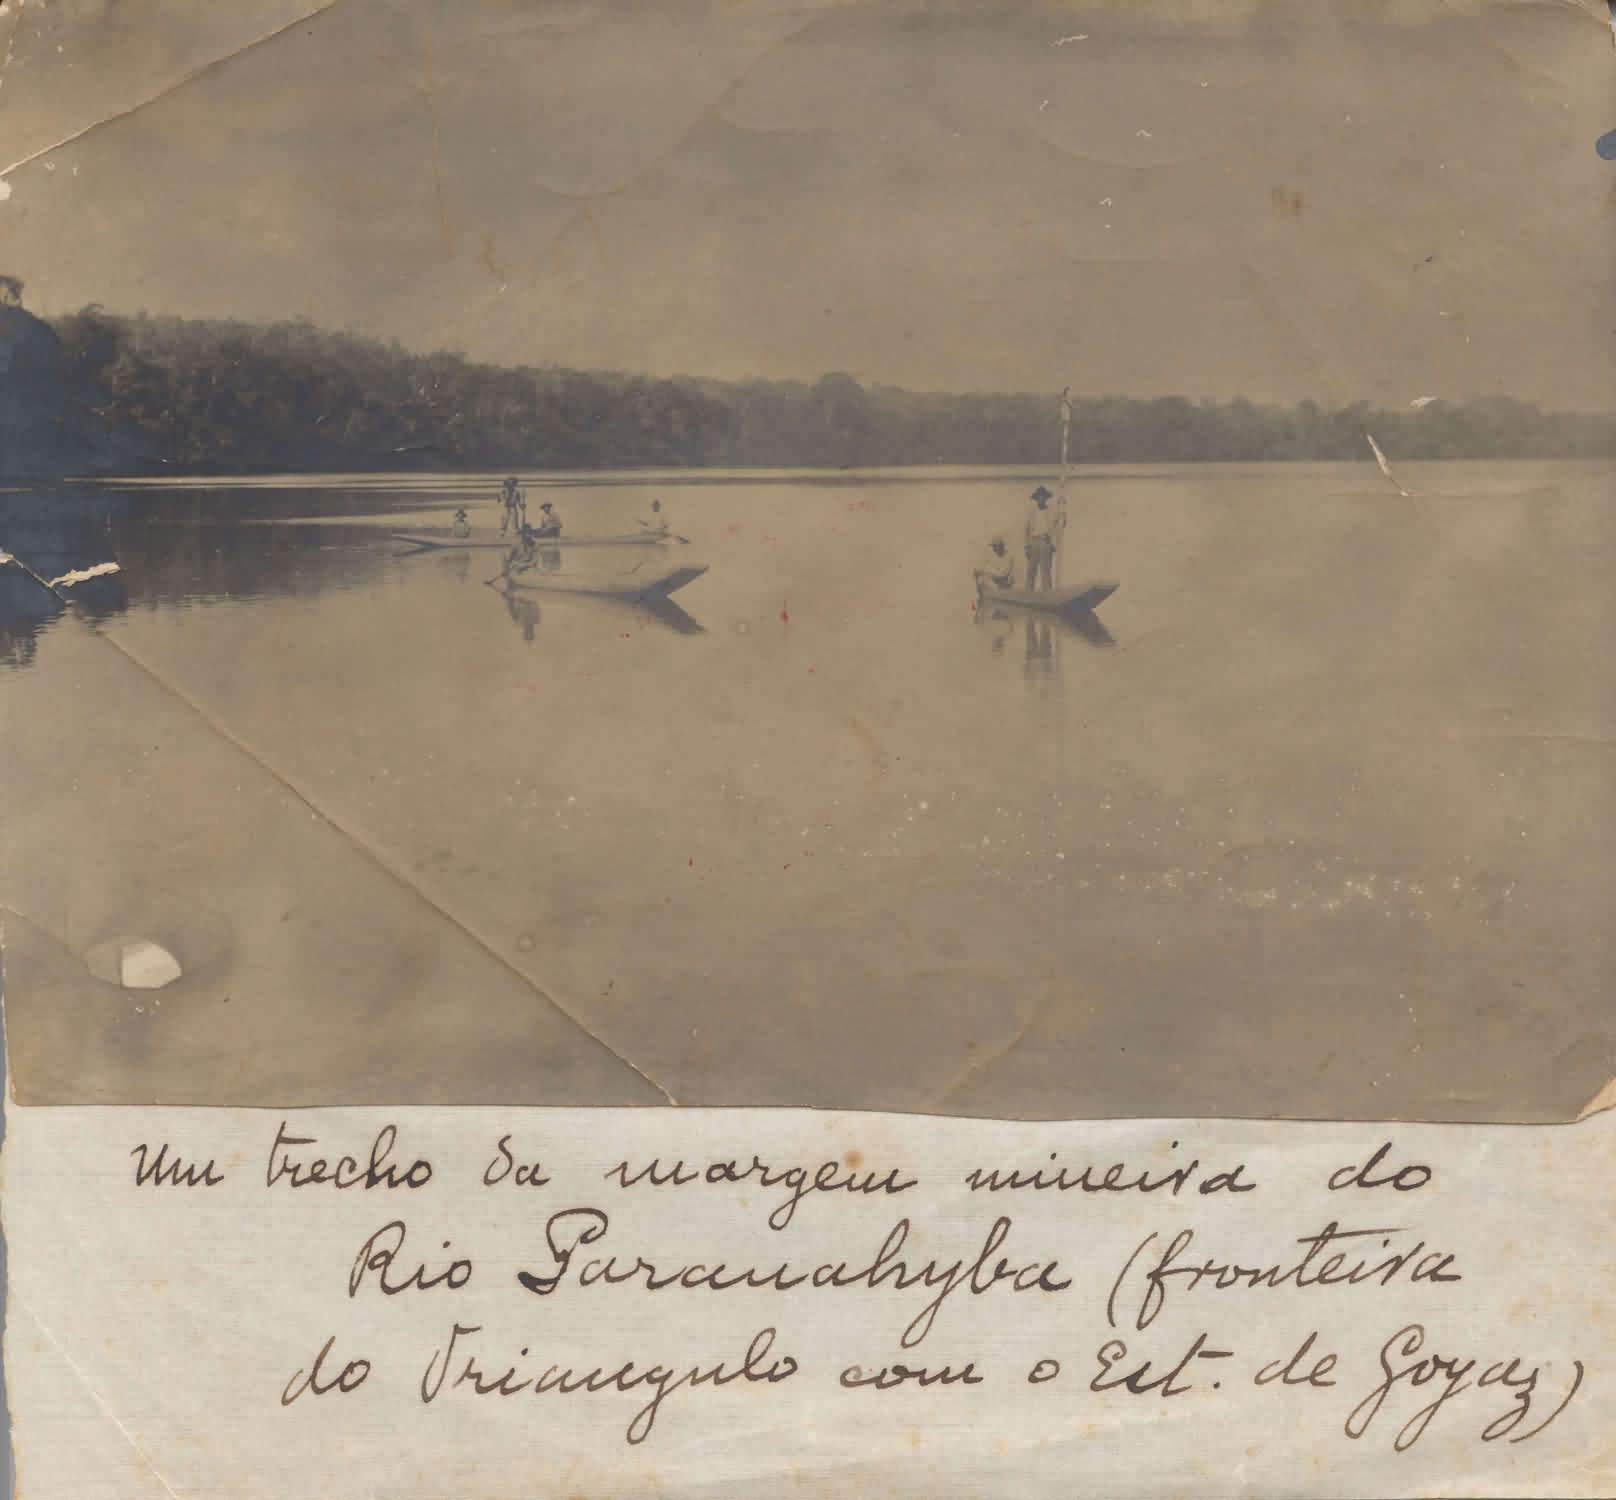 Um trecho da margem mineira do
Rio Paranahyba (fronteira
do Triangulo com o Est. de Goyaz)